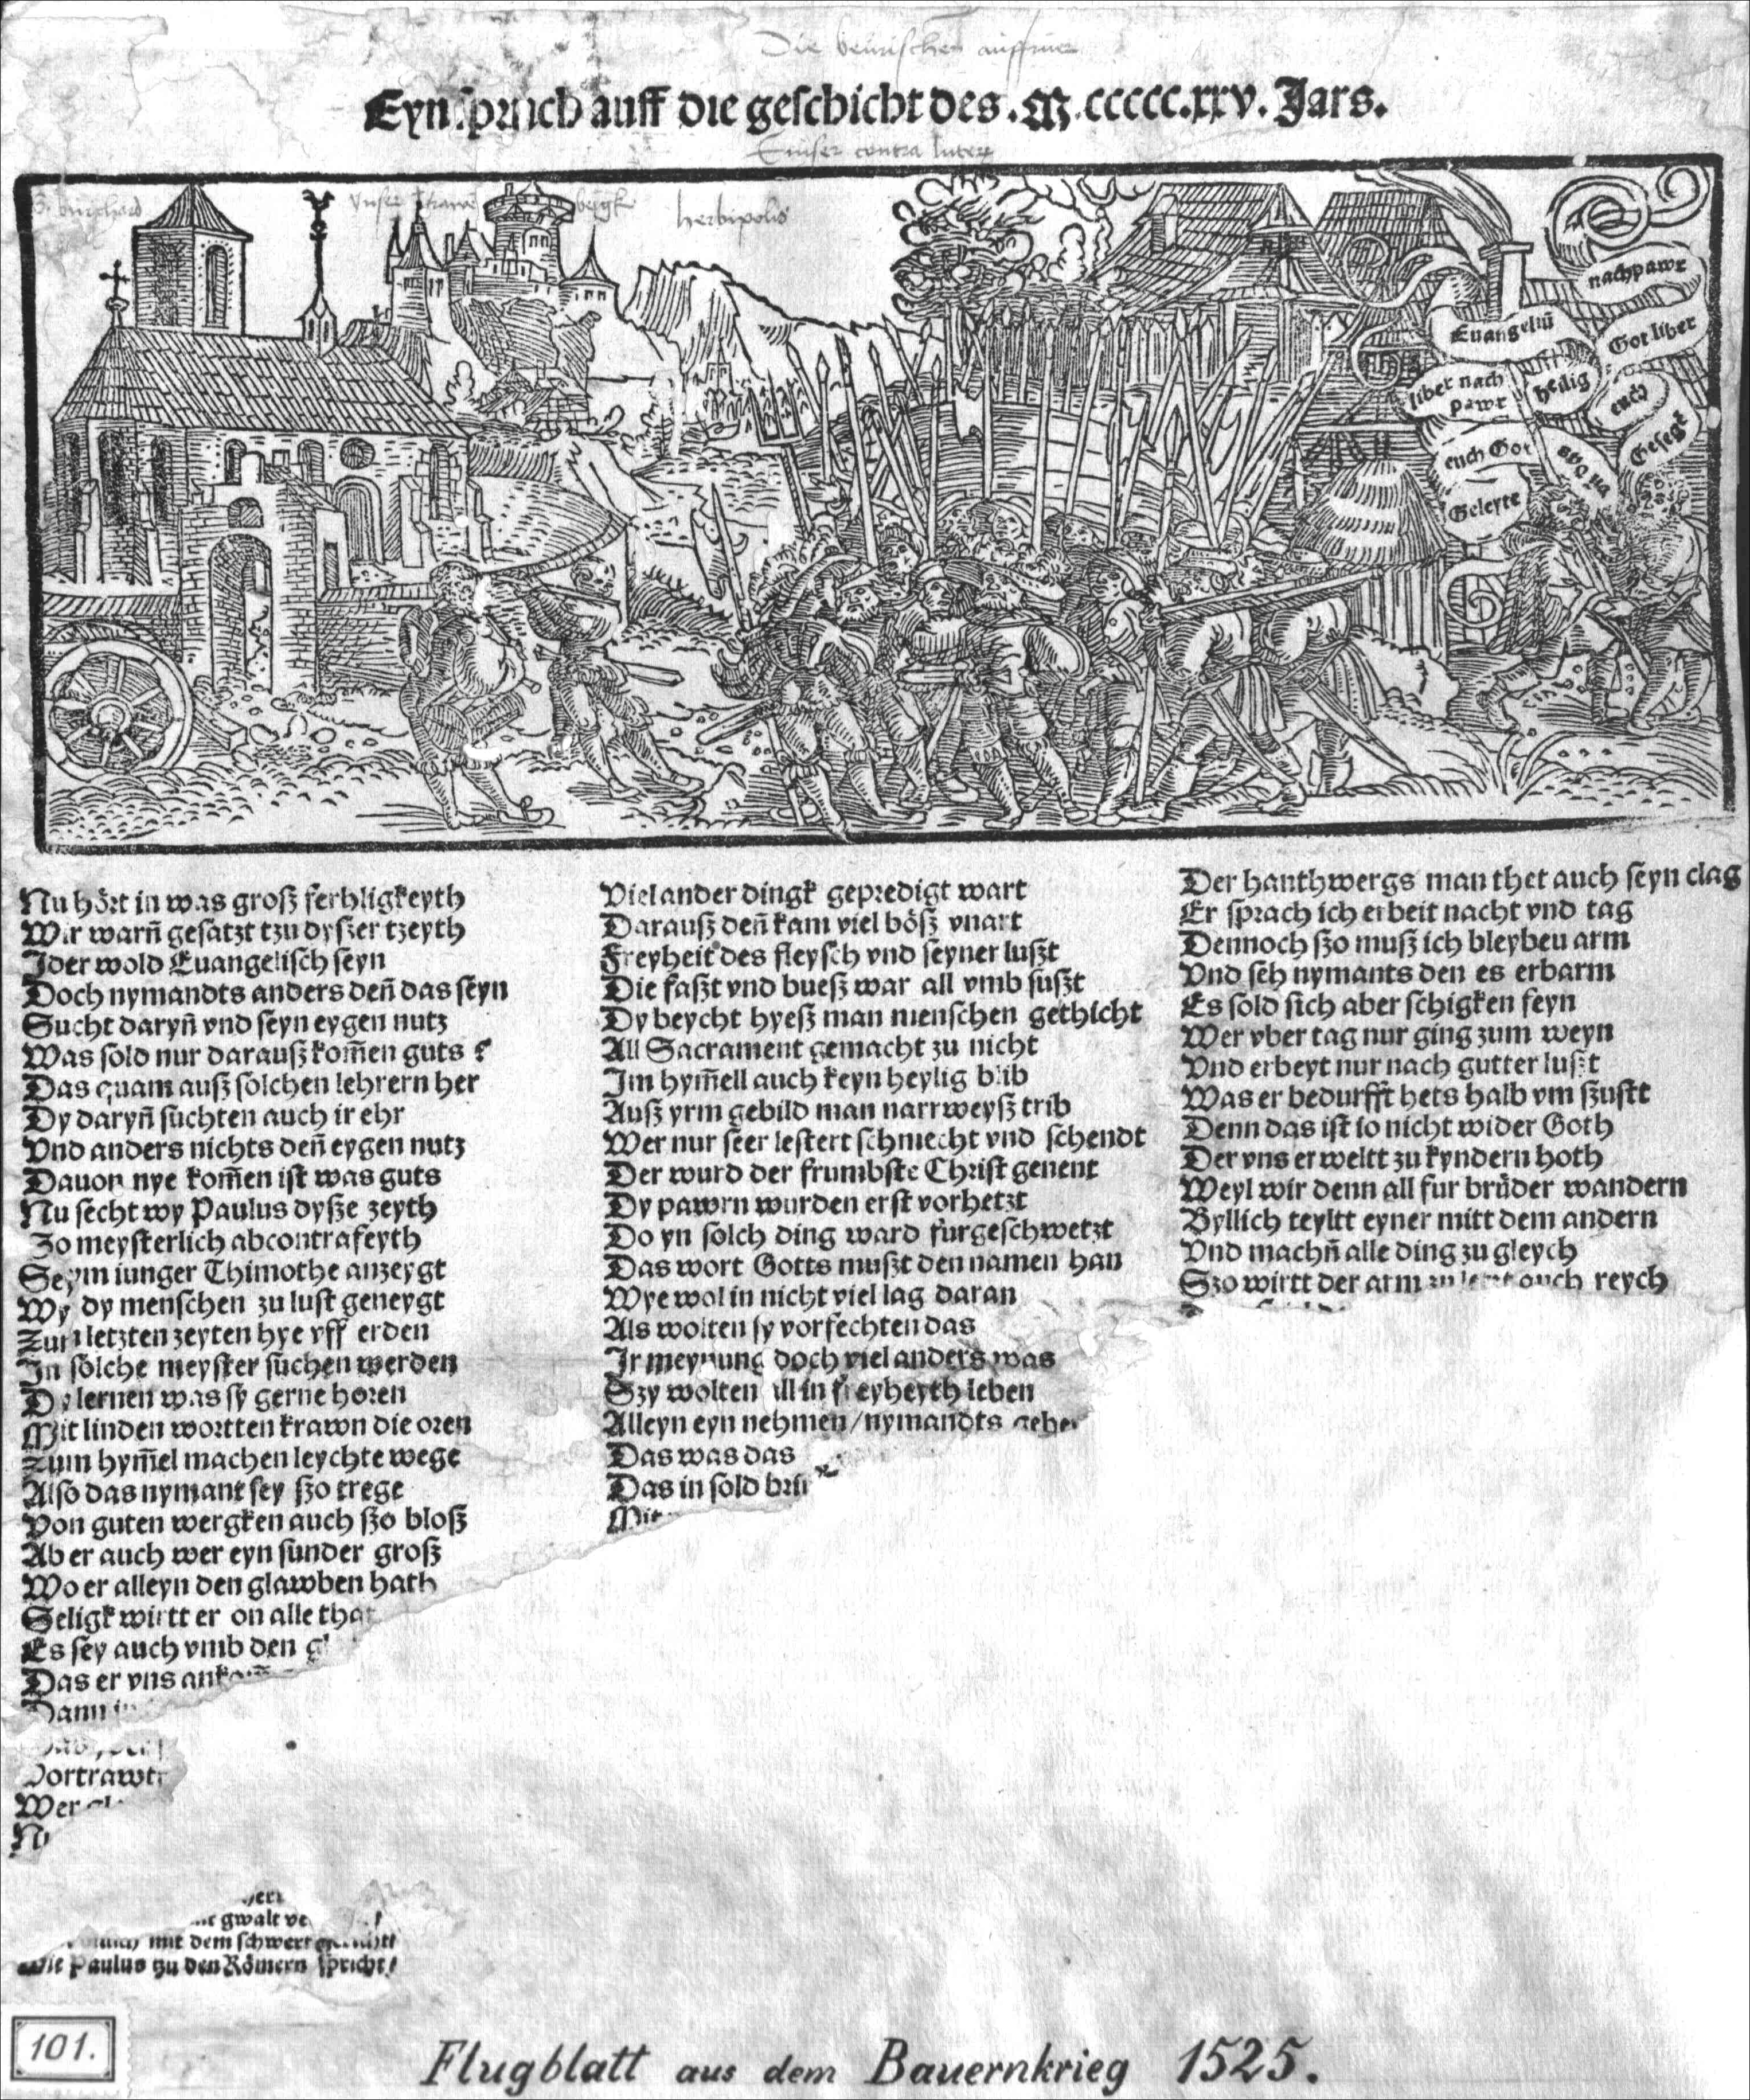 Die beurischen auffruer
Eyn spruch auff die geschicht des .M.ccccc.xxv. Jars.
Emser contra luter
S. burghard
Vnser frawen bergk
herbipolis
nachpawr
Euangeliũ
Got liber
liber nach
pawr
heilig
euch
euch Got
Gesegt
Geleyte
Nu hört in was groß ferhligkeyth
Wir warñ gesatzt tzu dyßer tzeyth
Jder wold Euangelisch seyn
Doch nymandts anders deñ das seyn
Sucht daryñ vnd seyn eygen nutz
Was sold nur darauß kom̃en guts ?
Das quam auß solchen lehrern her
Dy daryñ suchten auch ir ehr
Vnd anders nichts deñ eygen nutz
Dauon nye kom̃en ist was guts
Nu secht wy Paulus dyße zeyth
Zo meysterlich abcontrafeyth
Seym iunger Thimothe anzeygt
Wy dy menschen zu lust geneygt
Zun letzten zeyten hye vff erden
Jn solche meyster suchen werden
Dy lernen was sy gerne horen
Mit linden wortten krawn die oren
Zum hym̃el machen leychte wege
Also das nymant sey ßo trege
Von guten wergken auch ßo bloß
Ab er auch wer eyn sunder groß
Wo er alleyn den glawben hath
Seligk wirtt er on alle that
Es sey auch vmb den
Das er vns
Dann
Wer
Viel ander dingk gepredigt wart
Darauß deñ kam viel böß vnart
Freyheit des fleysch vnd seyner lußt
Die faßt vnd bueß war all vmb sußt
Dy beycht hyeß man menschen gethicht
All Sacrament gemacht zu nicht
Jm hym̃ell auch keyn heylig blib
Auß yrm gebild man narrweyß trib
Wer nur seer lestert schmecht vnd schendt
Der wurd der frumbste Christ genent
Dy pawrn wurden erst vorhetzt
Do yn solch ding ward fürgeschwetzt
Das wort Gotts mußt den namen han
Wye wol in nicht viel lag daran
Als wolten sy vorfechten das
Jr meynung doch viel anders was
Szy wolten all in freyheyth leben
Alleyn eyn nehmen/nymandts geben
Das was das
Das in sold
Mit
Der hanthwergs man thet auch seyn clag
Er sprach ich erbeit nacht vnd tag
Dennoch ßo muß ich bleyben arm
Vnd seh nymants den es erbarm
Es sold sich aber schigken feyn
Wer vber tag nur ging zum weyn
Vnd erbeyt nur nach gutter lußt
Was er bedurfft hets halb vm ßustt
Denn das ist io nicht wider Goth
Der vns erweltt zu kyndern hoth
Weyl wir denn all fur brüder wandern
Byllich teyltt eyner mitt dem andern
Vnd machñ alle ding zu gleych
Szo wirtt der arm zu letzt auch reych
gwalt
mit dem schwert
Wie Paulus tzu den Römern spricht/
101.
Flugblatt aus dem Bauernkrieg 1525.